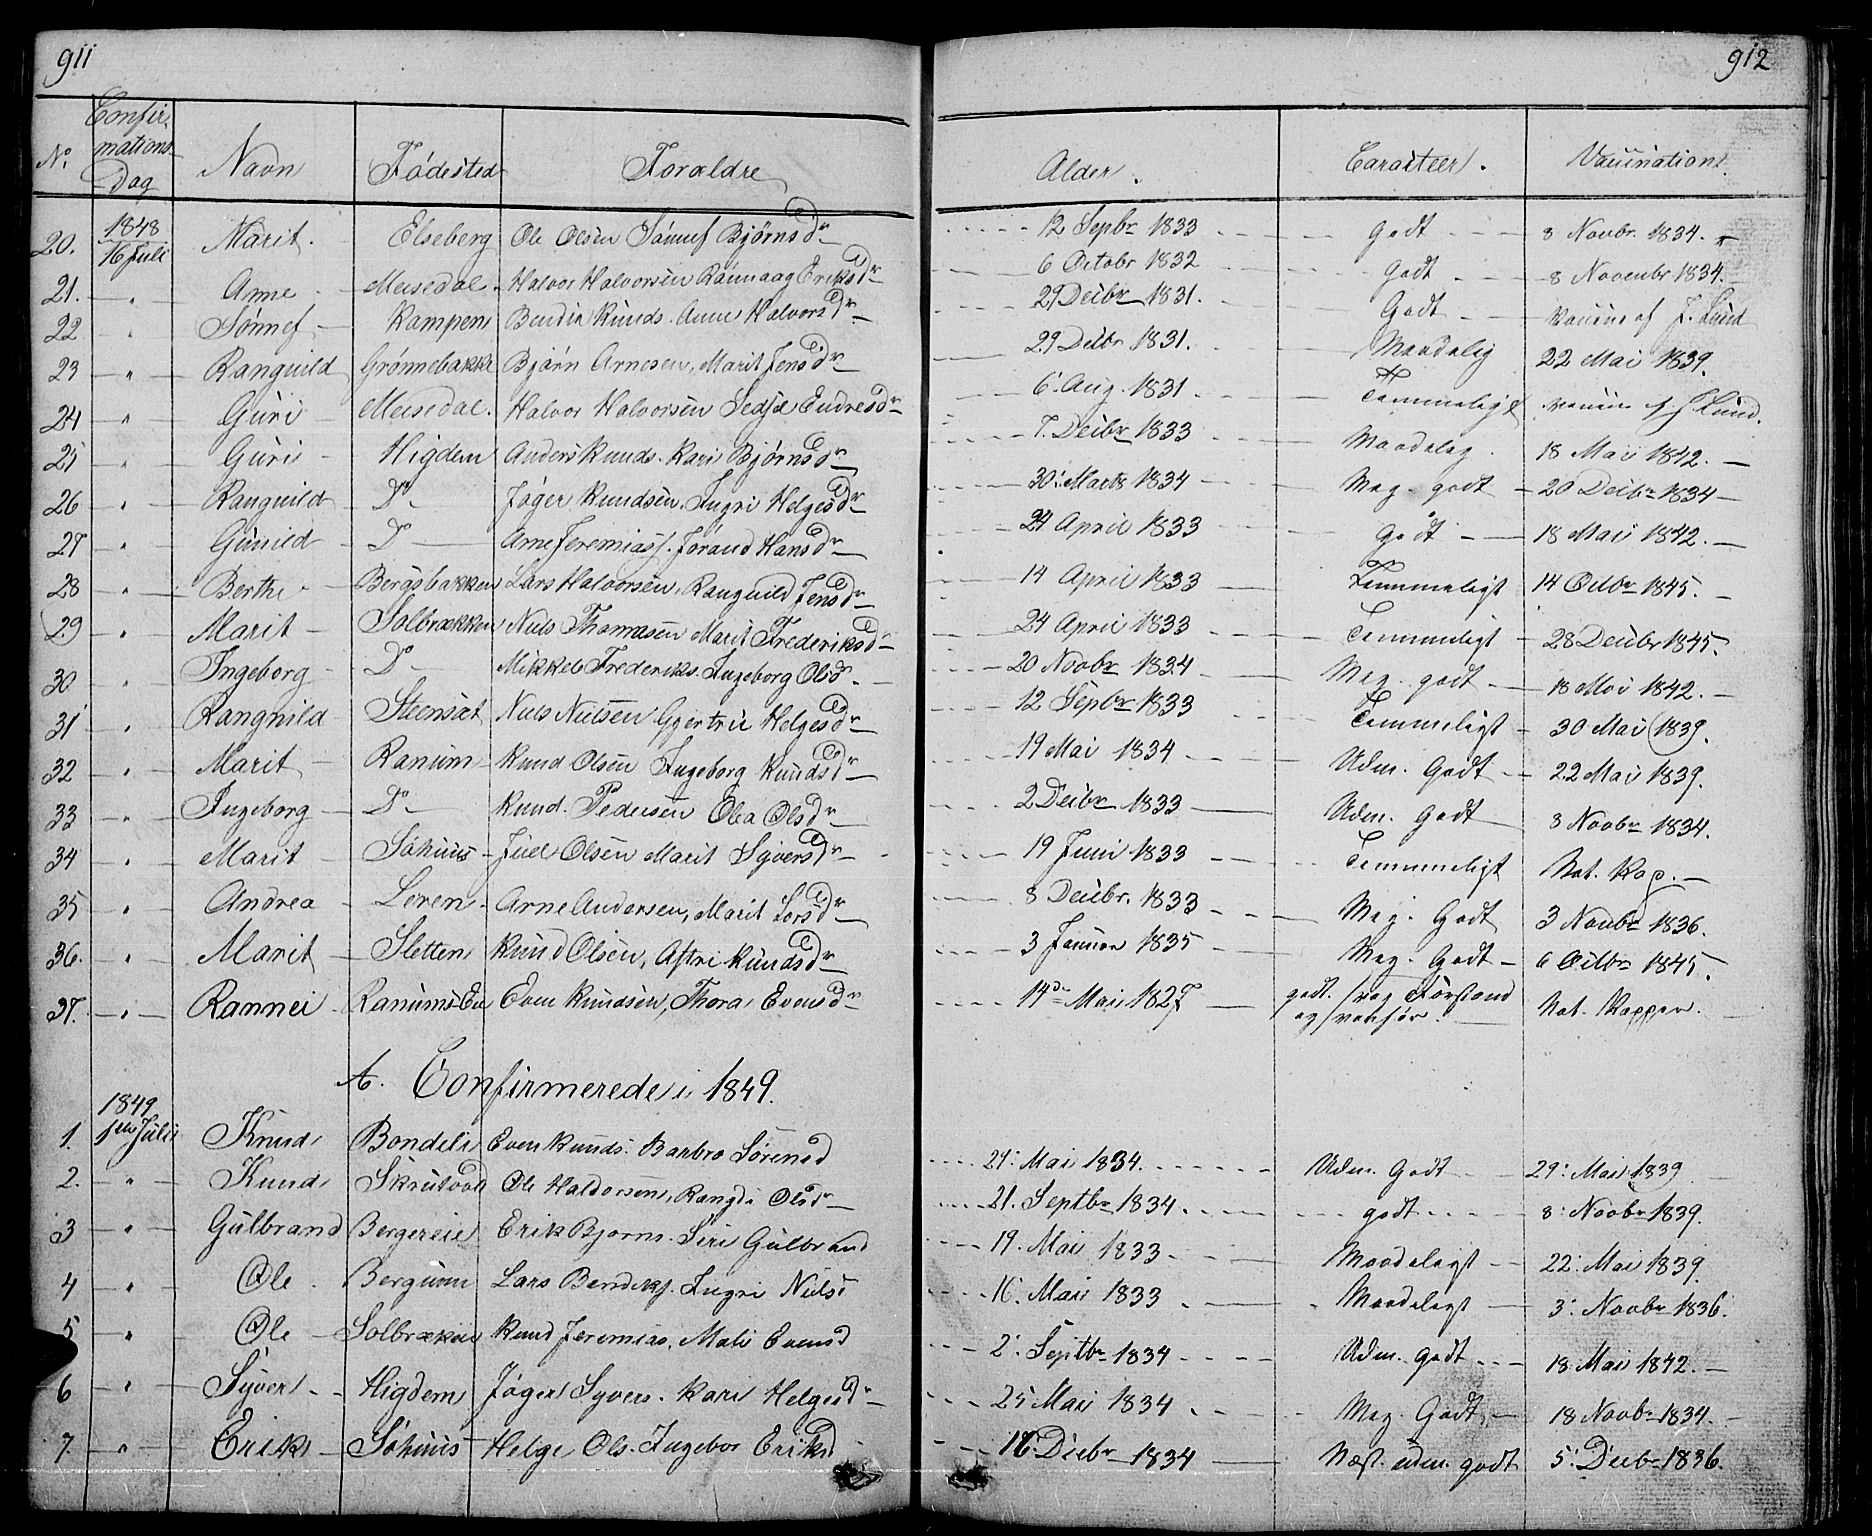 911
912
No. Confirmations Dag Navn Fødested Forældre Alder. Caracteer. Vaccination.
20. 1848 16 Juli Marit. Elseberg Ole Olsen Sønnef Bjørnsdr 12 Sepbr 1833 godt 8 Novbr. 1834.
21. " Anne Meisedal Halvor Halvorsen Eriksdr 6 Octobr 1832 godt 8 Novenbr 1834.
22 " Sønnef Kampen Knuds. Anne Halvorsdr 29 Decbr 1831. Godt af J. Lund
23 " Ranguild Grønnebakke Bjørn Arnesen, Marit Jensdr 29 Decbr 1831. Maadelig 22 Mai 1839.
24 " Guri Meisedal. Halvor Halvorsen Sedsel Endresdr 6. Aug. 1831 Temmeligt af J Lund.
25 " Guri Higden Anders Knuds. Kari Bjørnsdr 7. Decbr 1833 Maadelig. 18 Mai 1842.
26 " Ranguild Do Jøger Knudsen. Ingri Helgesdr 30. Marts 1834 Meg. godt 20 Decbr 1834
27 " Gunild Do Arne Jeremiass. Jorand Hansdr 24 April 1833 godt 18 Mai 1842.
28 " Berthe Bergsbakken Lars Halvorsen, Ranguild Jensdr 14 April 1833 Temmeligt 14 Octbr 1845.
29 " Marit Solbrækken Niels Thomasen Marit Frederiksdr 24 April 1833 Temmeligt 28 Decbr 1845.
30 " Ingeborg Do Mikkel Frederiks. Ingeborg Olsd. 20 Novbr 1834 Meg. godt 18 Mai 1842.
31 " Rangnild Steensæt Niels Nielsen Gjertrie Helgesdr 12 Sepbr 1833 Temmeligt 30 Mai 1839.
32 " Marit Ranum Knud Olsen Ingeborg Knudsdr 19 Mai 1834 Udm. Godt 22 Mai 1839.
33 " Ingeborg Do Knud. Pedersen Olea Olsdr 2 Decbr 1833 Udm. Godt 8 Novbr 1834.
34 " Marit Søhuus Juel Olsen Marit Syversdr 19 Juni 1833 Temmeligt Nat. Kop.
35 " Andrea Loren Arne Andersen, Marit Larsdr 8 Decbr. 1833 Meg. Godt 3 Novbr 1836.
36. " Marit Sletten Knud Olsen, Astri Knudsdr 3 Januar 1835 Meg. Godt 6 Octbr 1845.
37. " Rannei Ranums Eie Even Knudsen, Thora Evensdr 14de Mai 1827 godt. svag Forstand Nat. Kopper.
og vanfør.
A. Confirmerede i 1849.
1. 1849 1ste Juli Knud Bondelie Even Knuds. Barbro Sørensd 24. Mai 1834. Udm. Godt 29. Mai 1839
2. " Knud Skrutvold Ole Haldorsen, Rangdi Olsdr 21. Septbr 1834. godt 8. Novbr 1839.
3 " Gulbrand Bergereie Erik Bjørns. Siri Gulbrand 19. Mai 1833. Maadeligt 22. Mai 1839.
4 " Ole Bergum Lars Bendiks. Ingri Niels 16. Mai 1833. Maadeligt 3. Novbr 1836.
5 " Ole Solbrækken Knud Jeremias, Mali Evensd 2. Septbr 1834 Udm. godt 18 Mai 1842.
6 " Syver Higdem Jøger Syvers. Kari Helgesdr 25 Mai 1834 Meg. Godt 18 Novbr 1834.
7. " Erik Søhuus Helge Ols. Ingebor Eriksd 16. Decbr 1834 Næst. udm. godt 5. Decbr 1836.